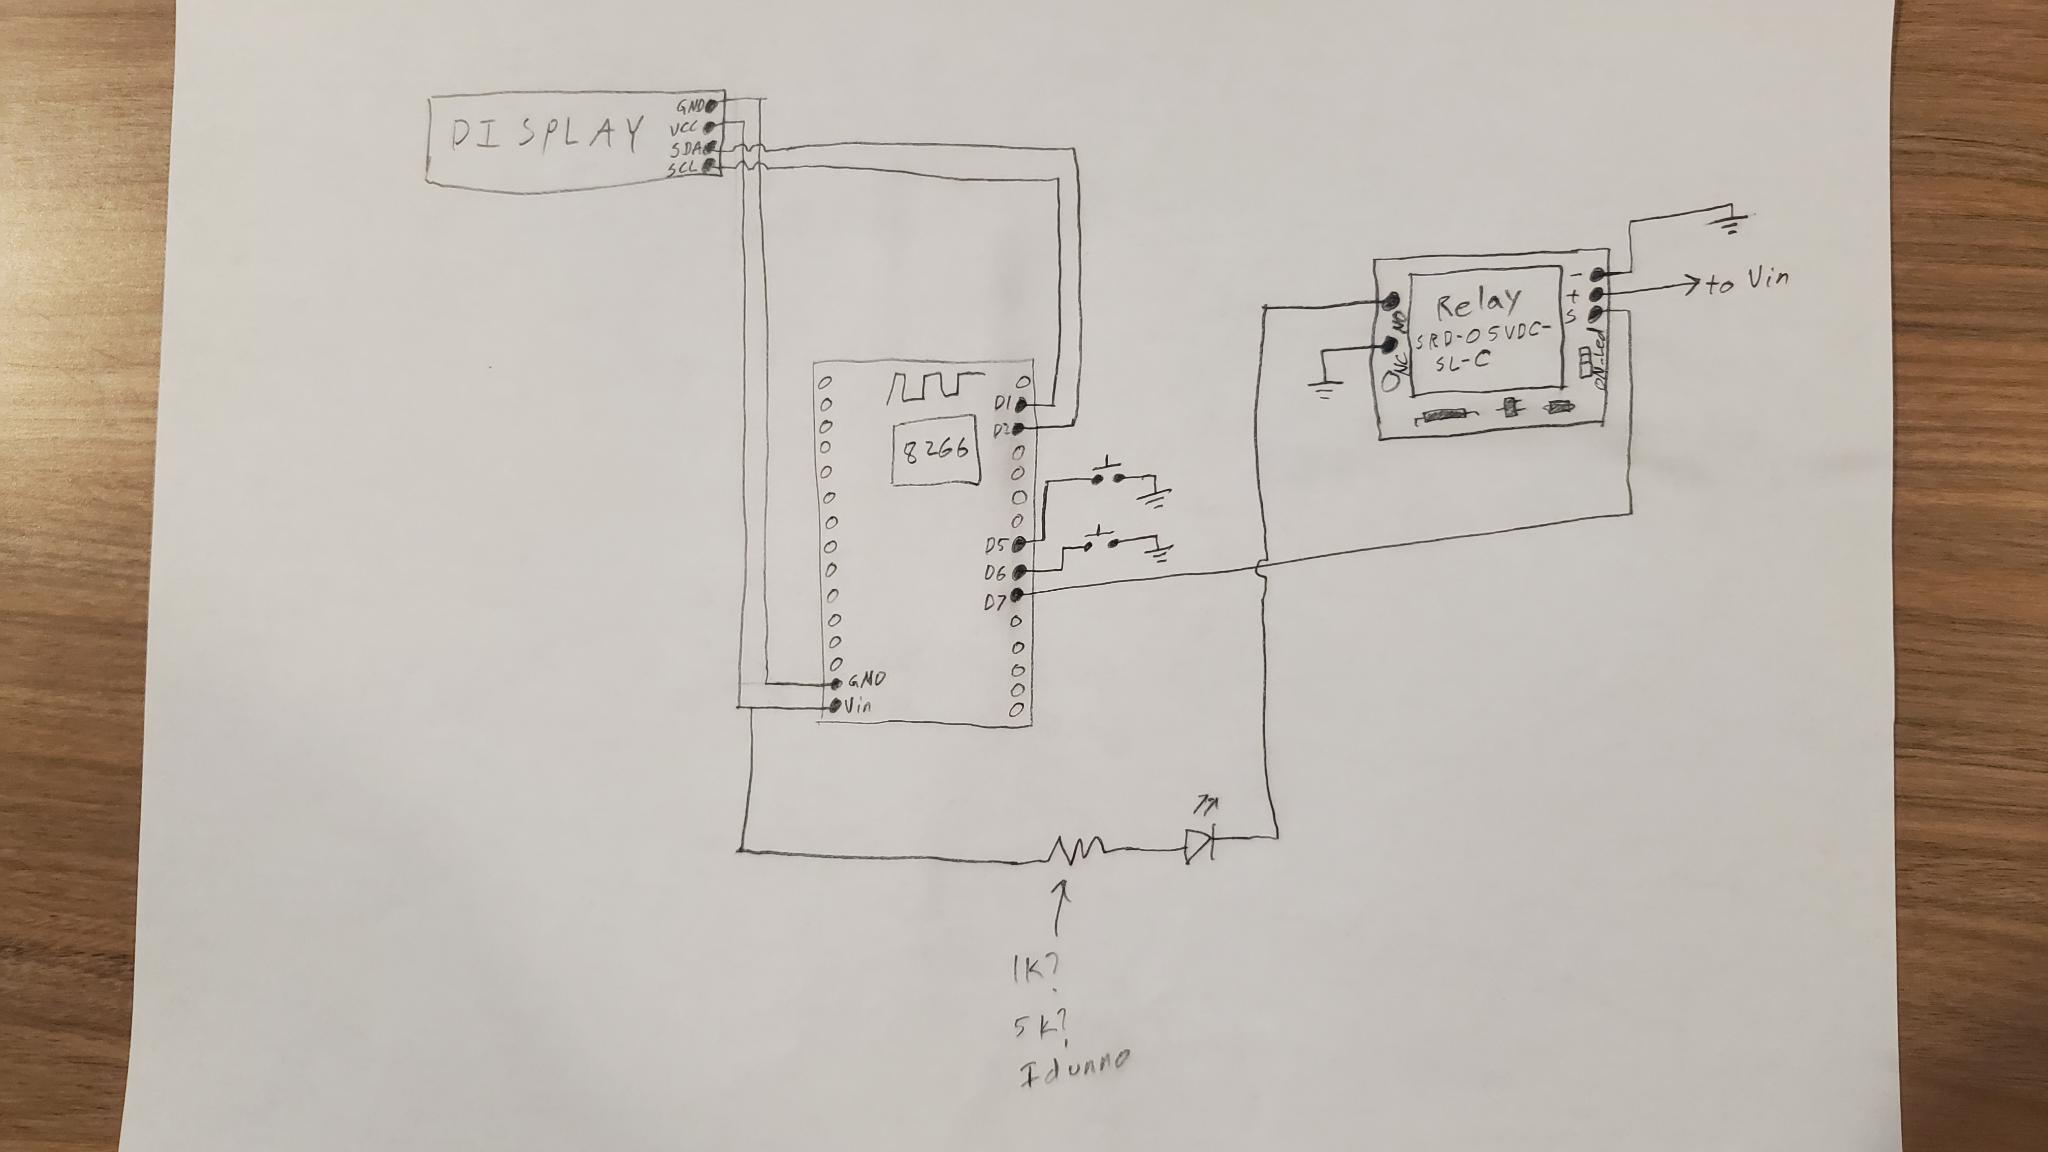 DISPLAY
GND
VCC
SDA
SCL
8266
D1
D2
D5
D6
D7
GND
Vin
Relay
SRD-05VDC-
SL-C
NO
NC
-
+
S
ON-Led
to Vin
1K?
5K?
I dunno